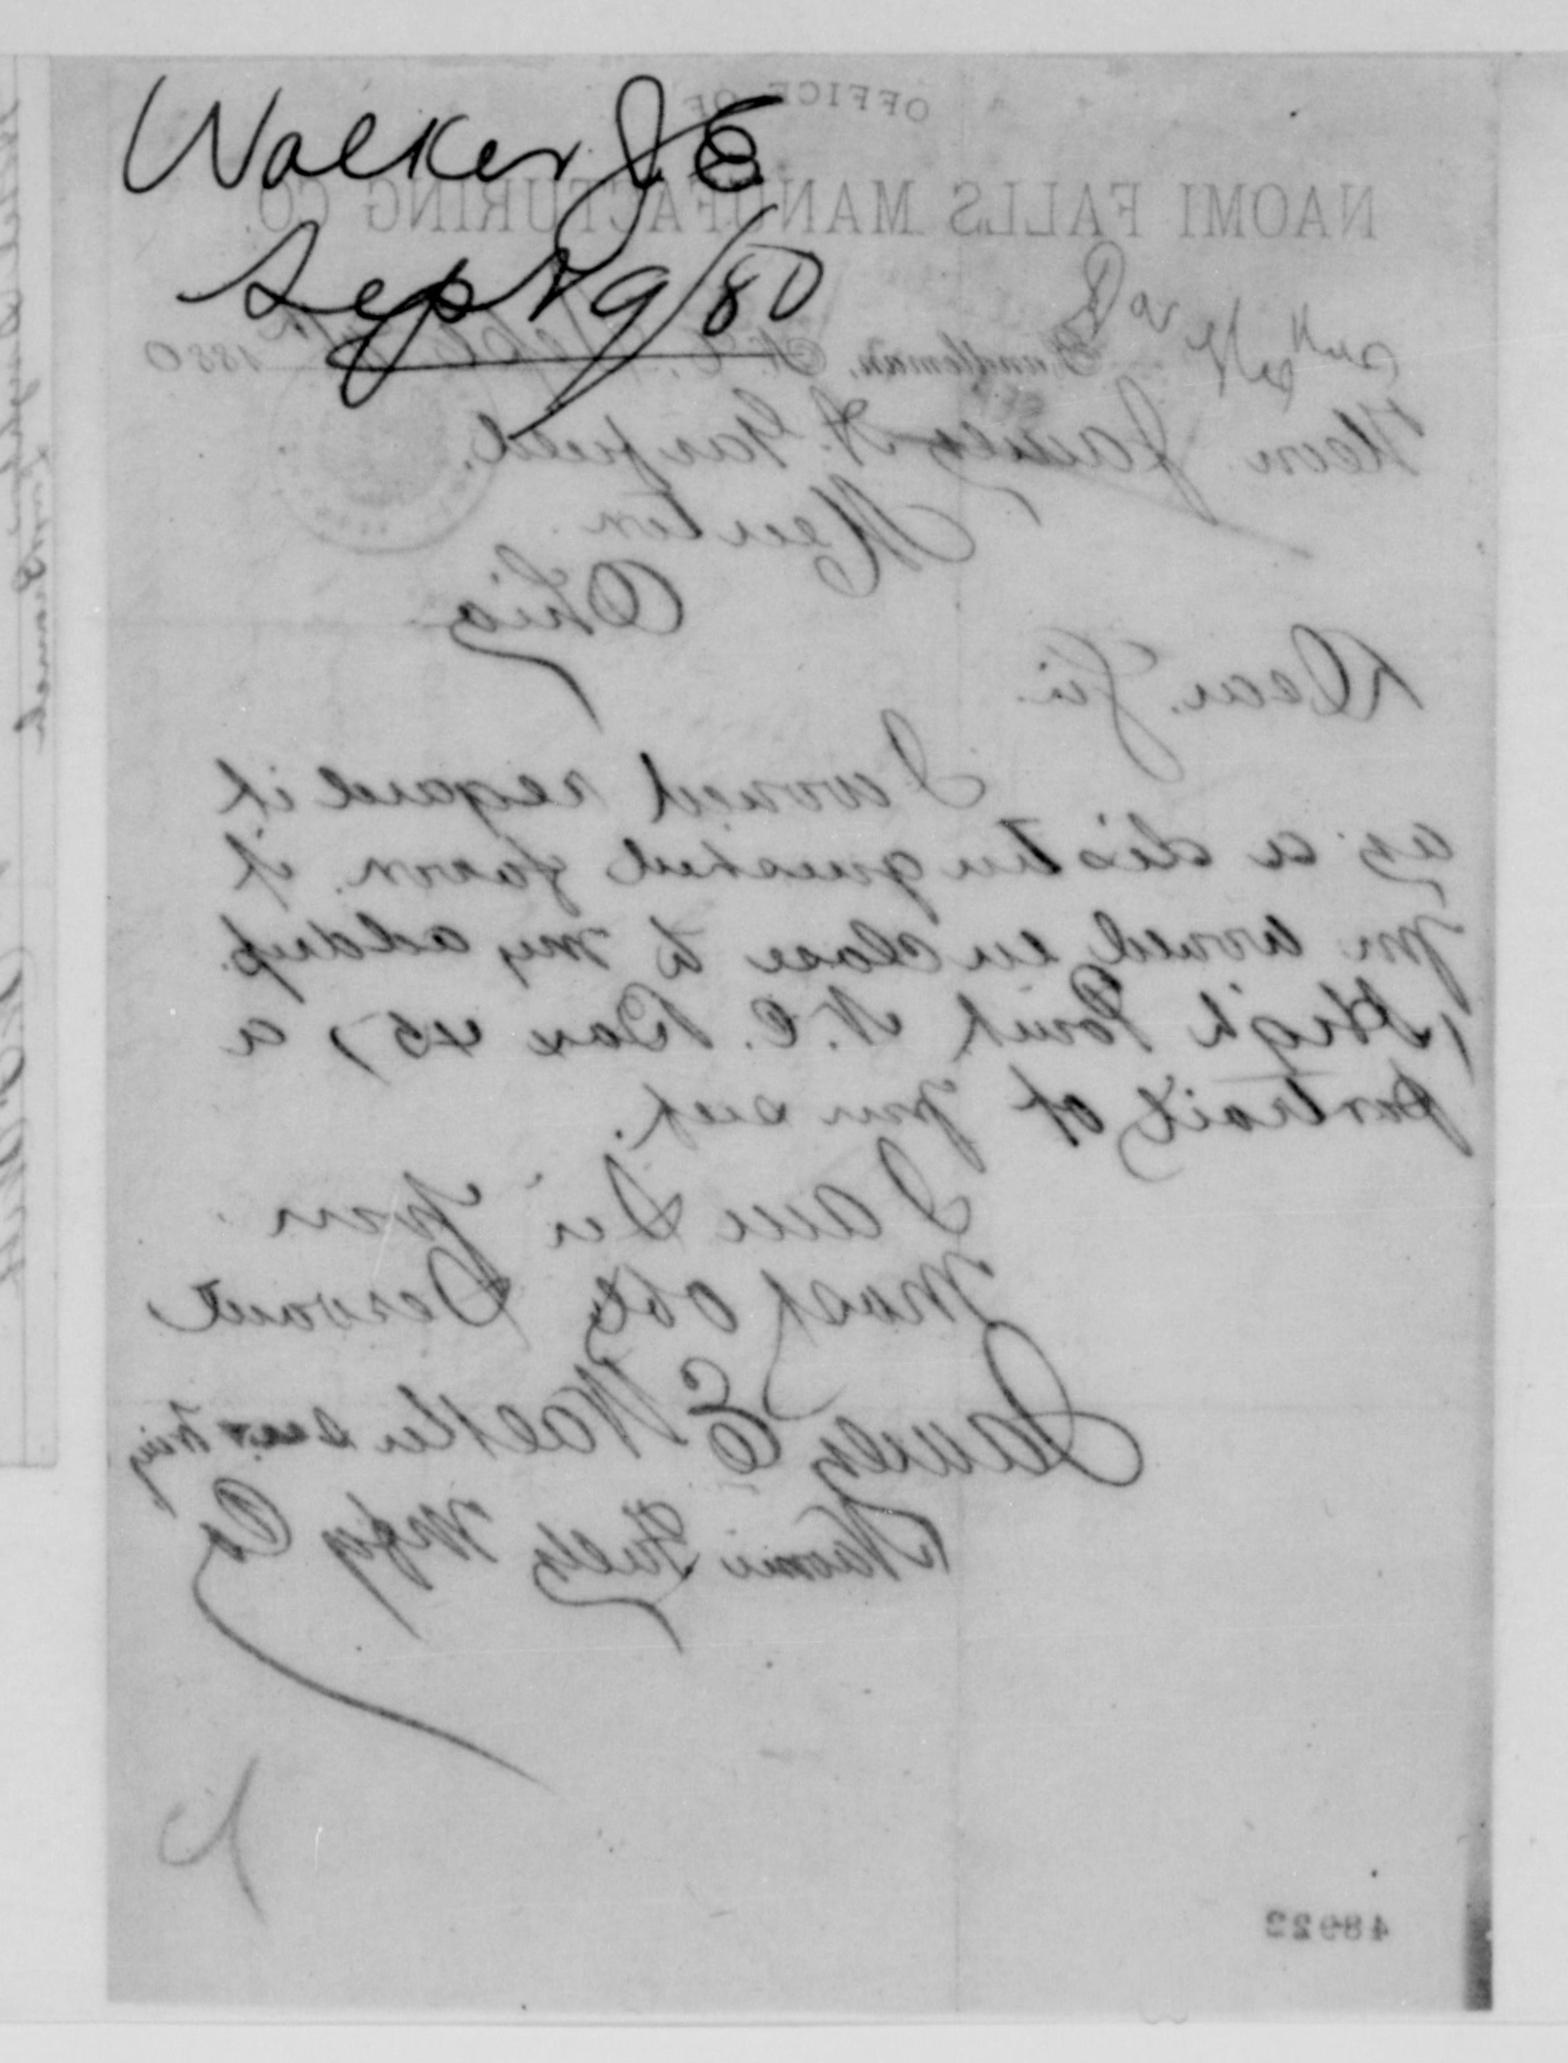 Walker J E
Sept 9/80
OFFICE OF
NAOMI FALLS MANUFACTURING CO.
Randleman, N.C. Sept 9th 1880
Hon. James A. Garfield.
Mentor
Ohio
Dear Sir
I would regard it
as a distinguished favor if
you would enclose to my address
(High Point N.C. Box 45) a
portrait of your self.
I am Sir your
Most Obt Servant
James E Walker
Naomi Falls Mfg Co
48922